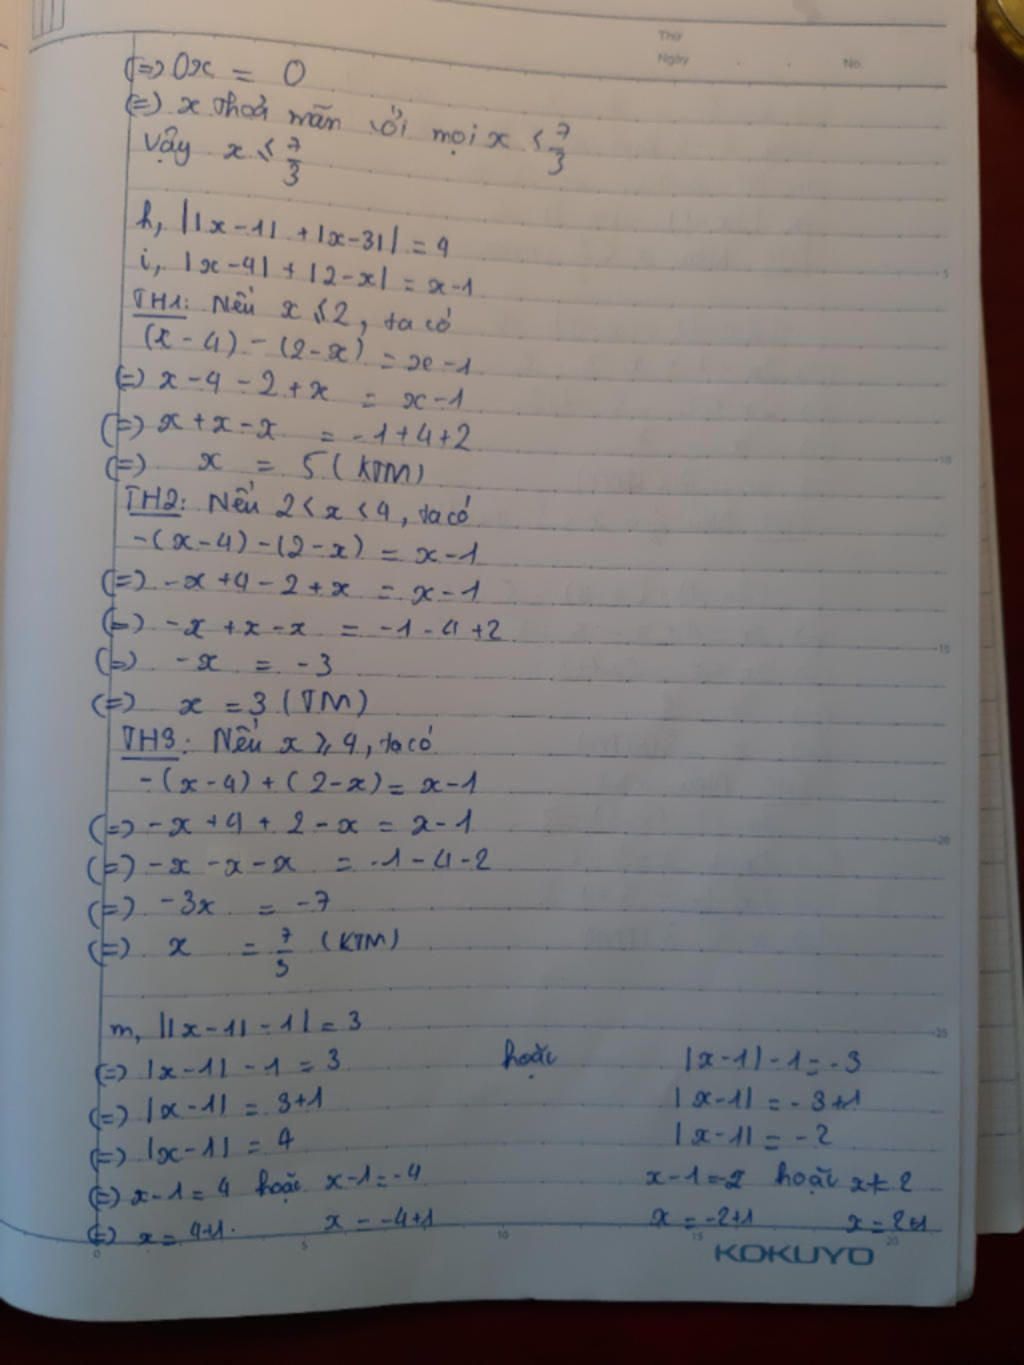 Thứ
Ngày . . No.
(=) 0x = 0
(=) x thoả mãn với mọi x ≤ 7/3
Vậy x ≤ 7/3
h, ||x-1| + |x-3|| = 4
i, |x-4| + |2-x| = x-1
TH1: Nếu x ≤ 2, ta có
(x-4) - (2-x) = x-1
(=) x-4-2+x = x-1
(=) x+x-x = -1+4+2
(=) x = 5 (KTM)
TH2: Nếu 2 < x < 4, ta có
-(x-4) - (2-x) = x-1
(=) -x+4-2+x = x-1
(=) -x+x-x = -1-4+2
(=) -x = -3
(=) x = 3 (TM)
TH3: Nếu x ≥ 4, ta có
-(x-4) + (2-x) = x-1
(=) -x+4+2-x = x-1
(=) -x-x-x = -1-4-2
(=) -3x = -7
(=) x = 7/3 (KTM)
m, ||x-1| - 1| = 3
(=) |x-1| - 1 = 3 hoặc |x-1| - 1 = -3
(=) |x-1| = 3+1 |x-1| = -3+1
(=) |x-1| = 4 |x-1| = -2
(=) x-1 = 4 hoặc x-1 = -4 x-1 = -2 hoặc x-1 = 2
(=) x = 4+1. x = -4+1 x = -2+1 x = 2+1
0 5 10 15 20
KOKUYO